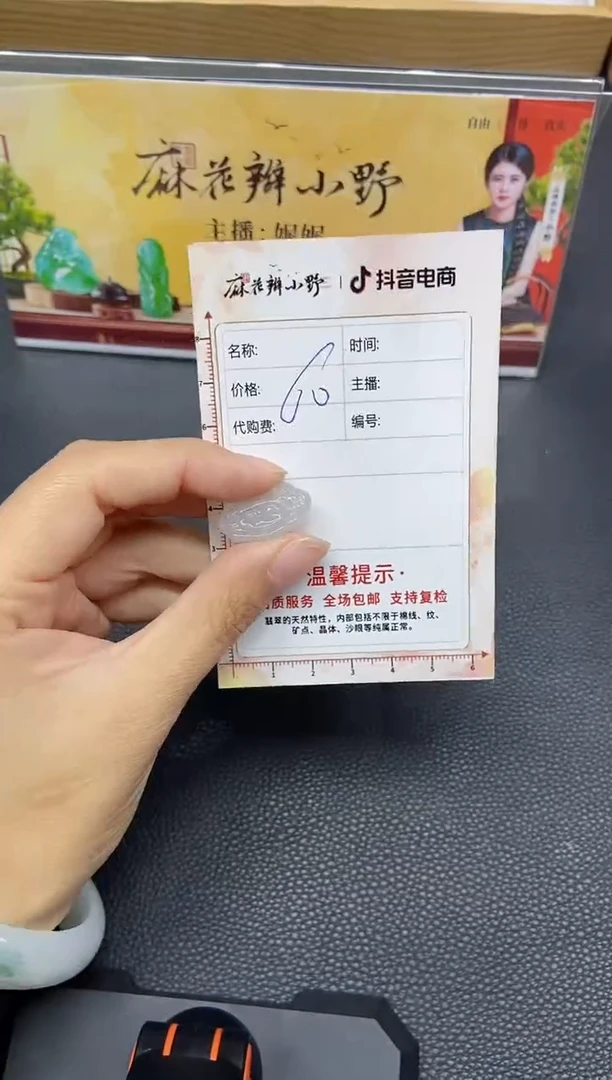 麻花辫小野
主播:妮妮
麻花辫小野 | 抖音电商
名称: 时间:
价格: 主播:
代购费: 编号:
温馨提示·
质服务 全场包邮 支持复检
翡翠的天然特性，内部包括不限于棉线、纹、
矿点、晶体、沙眼等纯属正常。
8
7
6
4
3
1 2 3 4 5 6